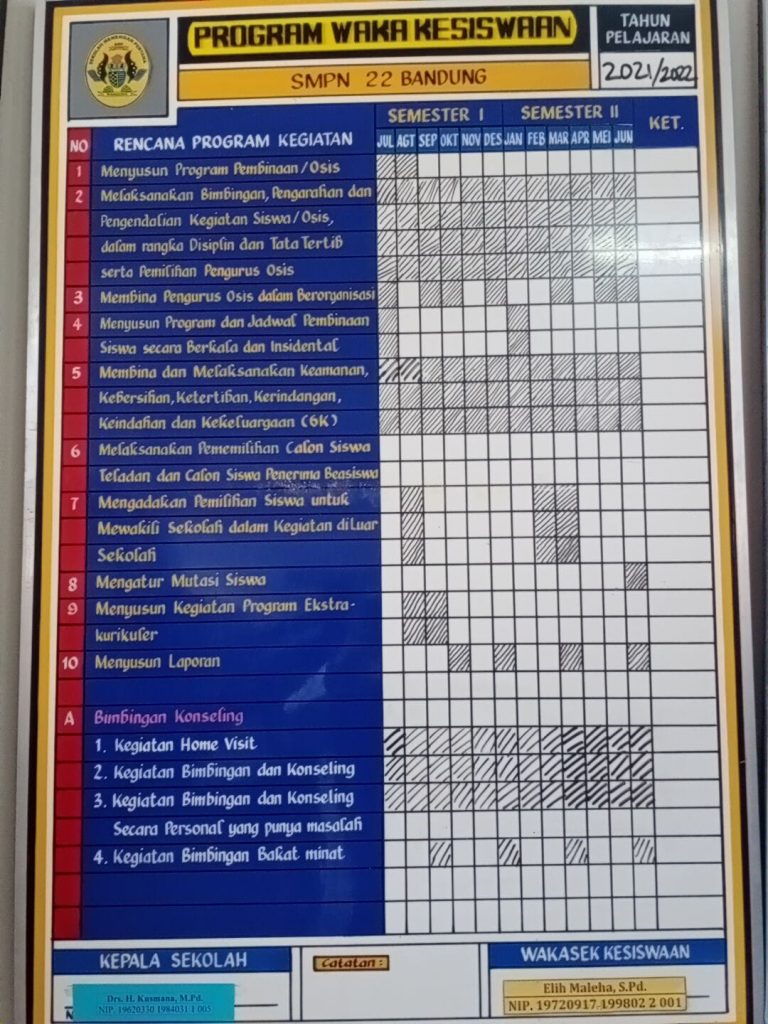 PROGRAM WAKA KESISWAAN
SMPN 22 BANDUNG
TAHUN
PELAJARAN
2021/2022
NO RENCANA PROGRAM KEGIATAN SEMESTER I SEMESTER II KET.
JUL AGT SEP OKT NOV DES JAN FEB MAR APR MEI JUN
1 Menyusun Program Pembinaan/Osis
2 Melaksanakan Bimbingan, Pengarahan dan
Pengendalian Kegiatan Siswa/Osis,
dalam rangka Disiplin dan Tata Tertib
serta Pemilihan Pengurus Osis
3 Membina Pengurus Osis dalam Berorganisasi
4 Menyusun Program dan Jadwal Pembinaan
Siswa secara Berkala dan Insidental
5 Membina dan Melaksanakan Keamanan,
Kebersihan, Ketertiban, Kerindangan,
Keindahan dan Kekeluargaan (6K)
6 Melaksanakan Pememilihan Calon Siswa
Teladan dan Calon Siswa Penerima Beasiswa
7 Mengadakan Pemilihan Siswa untuk
Mewakili Sekolah dalam Kegiatan diLuar
Sekolah
8 Mengatur Mutasi Siswa
9 Menyusun Kegiatan Program Ekstra-
kurikuler
10 Menyusun Laporan
A Bimbingan Konseling
1. Kegiatan Home Visit
2. Kegiatan Bimbingan dan Konseling
3. Kegiatan Bimbingan dan Konseling
Secara Personal yang punya masalah
4. Kegiatan Bimbingan Bakat minat
KEPALA SEKOLAH
Drs. H. Kusmana, M.Pd.
NIP. 19620330 1984031 1 005
Catatan :
WAKASEK KESISWAAN
Elih Maleha, S.Pd.
NIP. 19720917 199802 2 001